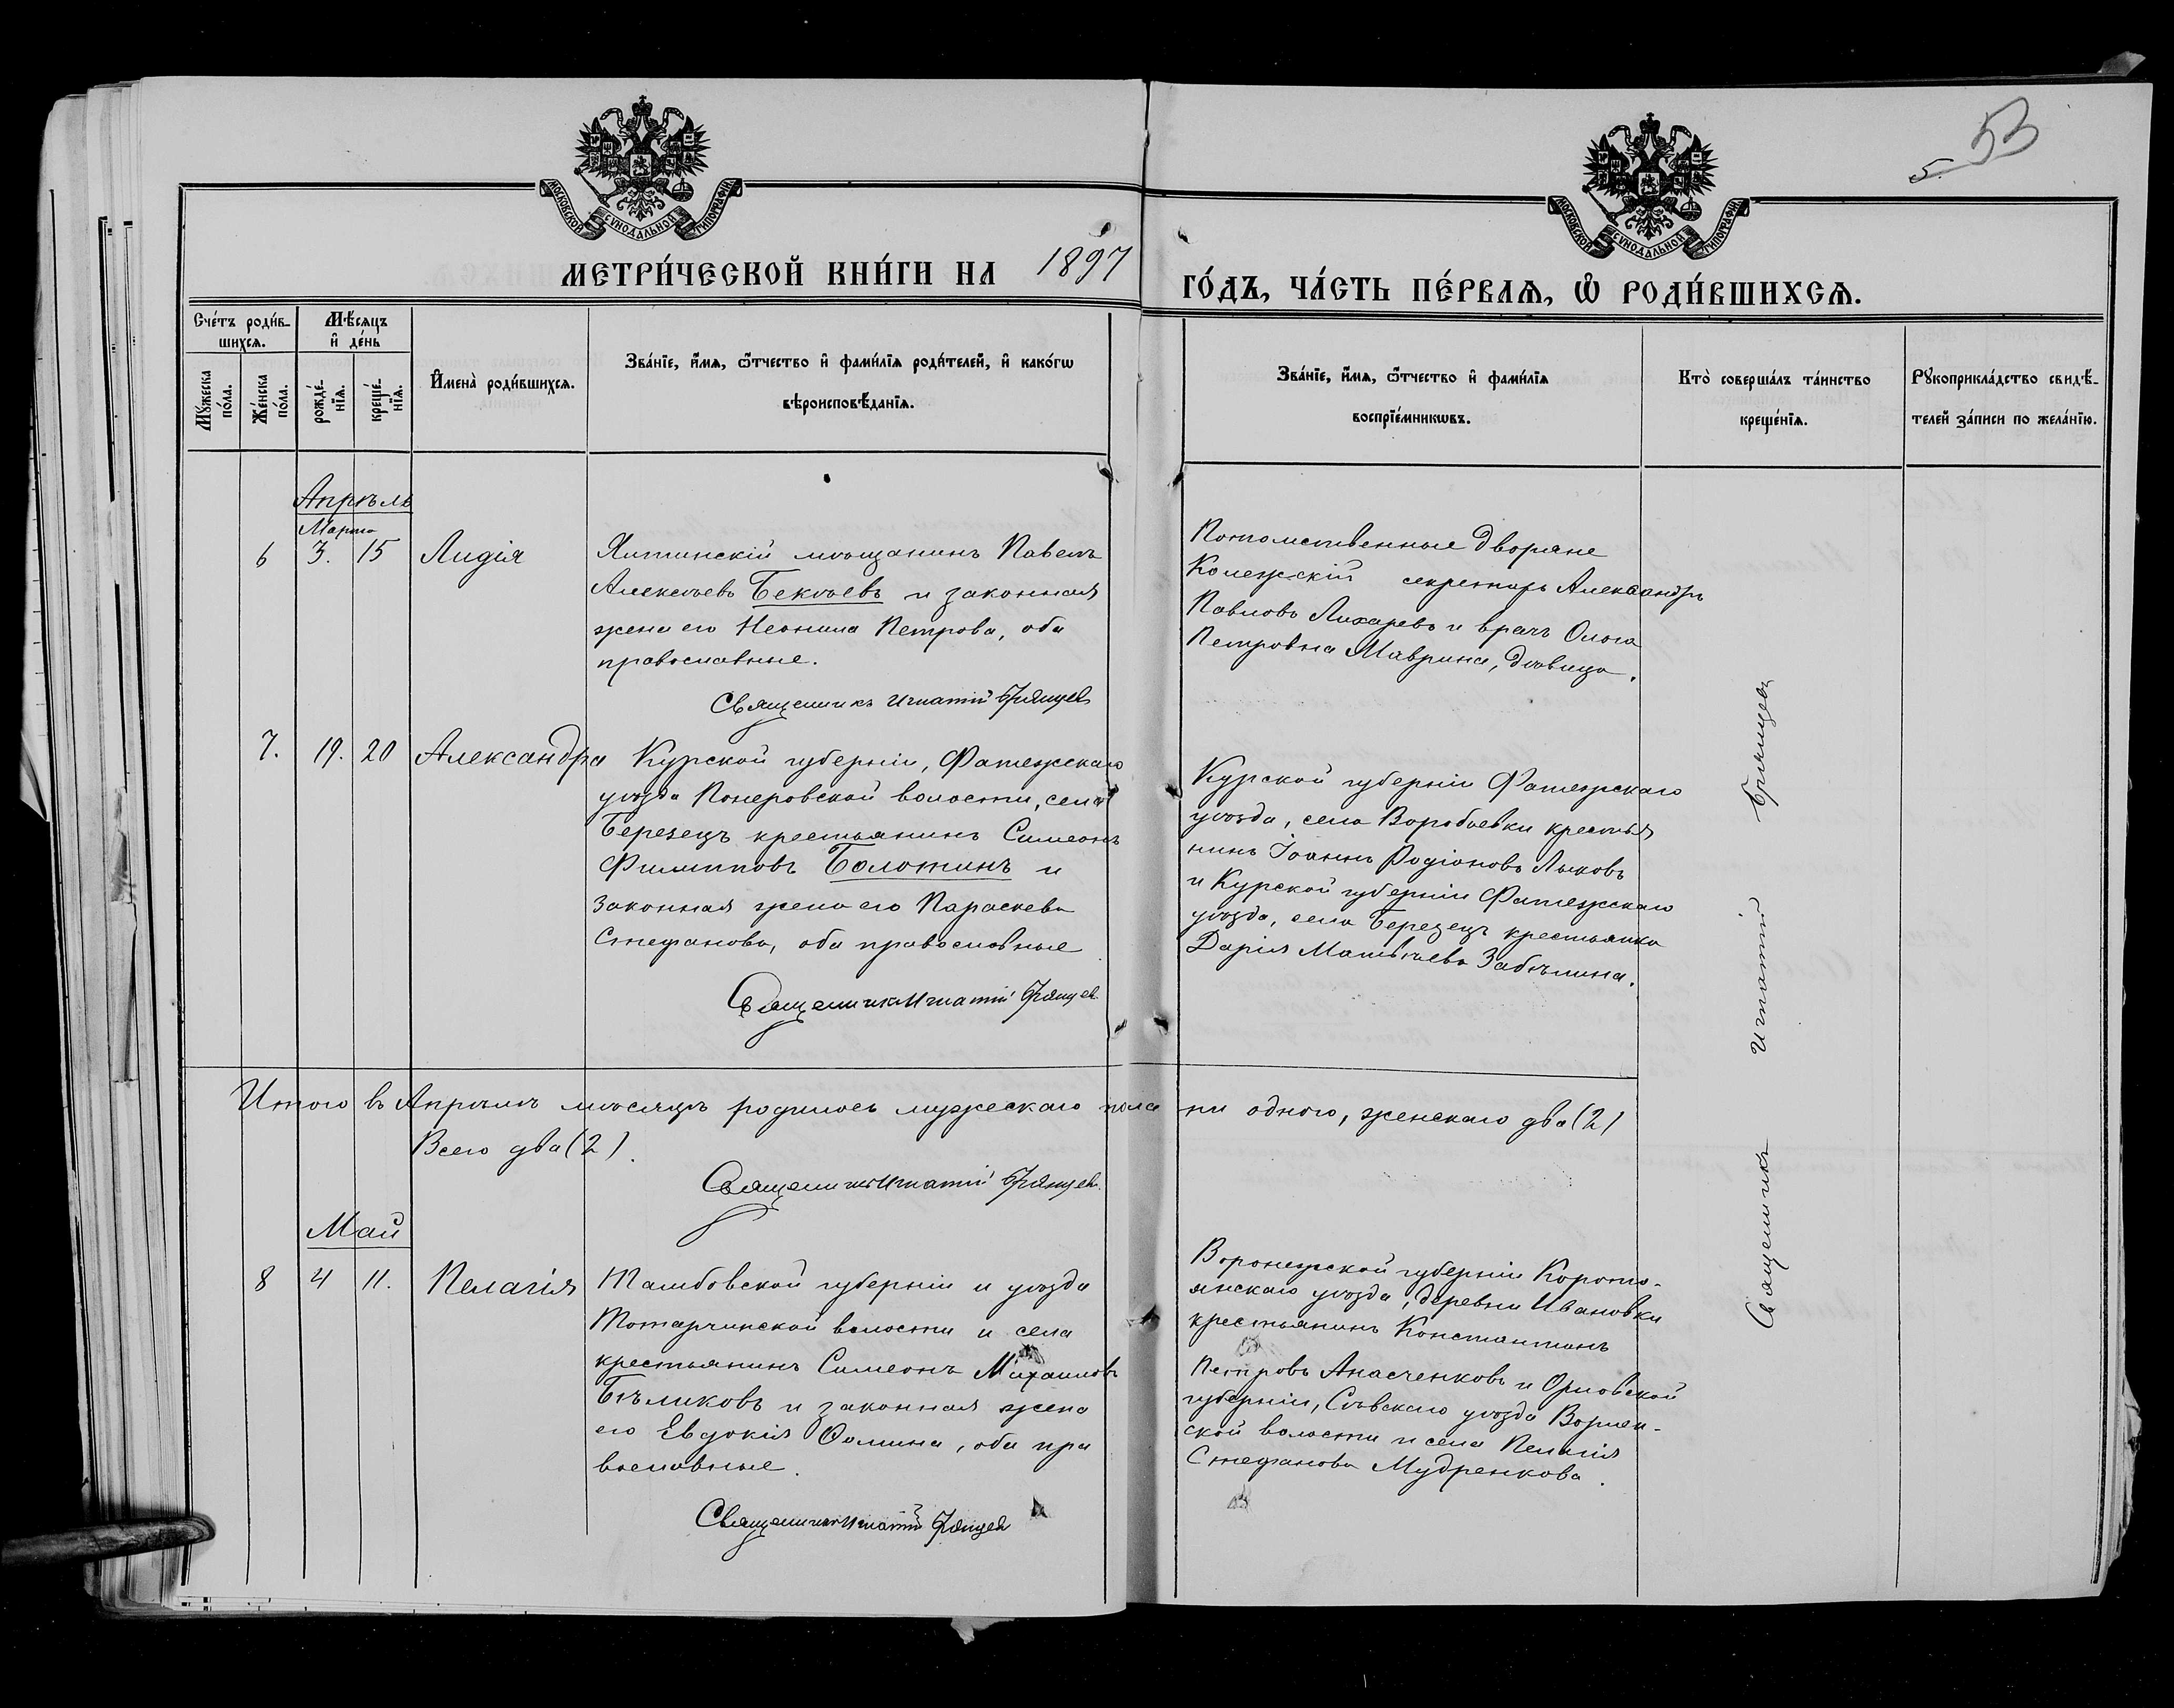 53
5.
МОСКОВСКОЙ СУНОДАЛЬНОЙ ТИПОГРАФІИ
МОСКОВСКОЙ СУНОДАЛЬНОЙ ТИПОГРАФІИ
МЕТРИ́ЧЕСКОЙ КНИ́ГИ НА 1897 ГО́ДЪ, ЧА́СТЬ ПЕ́РВАѦ, Ѡ҆ РОДИ́ВШИХСѦ.
Сче́тъ роди́в-
шихсѧ.
Мꙋ́жеска по́ла.
Же́нска по́ла.
Мѣ́сѧцъ
и҆ де́нь
рожде́-нїѧ.
креще́-нїѧ.
И҆мена̀ роди́вшихсѧ.
Зва́нїе, и҆́мѧ, ѻ҆́тчество и҆ фами́лїѧ роди́телей, и҆ како́гѡ
вѣроисповѣ́данїѧ.
Зва́нїе, и҆́мѧ, ѻ҆́тчество и҆ фами́лїѧ
воспрїе́мникѡвъ.
Кто̀ соверша́лъ та́инство
креще́нїѧ.
Рꙋкоприкла́дство свидѣ́-
телей за́писи по жела́нїю.
Апрѣль
Марта
6 3. 15 Лидія
Ялтинскій мѣщанинъ Павелъ
Алексѣевъ Бекѣевъ и законная
жена его Неонила Петрова, оба
православные.
Священникъ Игнатій Брянцев
Потомственные дворяне
Колежскій секретарь Александръ
Павловъ Лихаревъ и врачъ Ольга
Петровна Маврина, дѣвица.
7. 19. 20 Александра
Курской губерніи, Фатежскаго
уѣзда Понеровской волости, села
Березецъ крестьянинъ Симеонъ
Филипповъ Болотинъ и
законная жена его Параскева
Стефанова, оба православные
Священникъ Игнатій Брянцев
Курской губерніи Фатежскаго
уѣзда, села Воробьевки крестья
нинъ Іоаннъ Родіоновъ Лыковъ
и Курской губерніи Фатежскаго
уѣзда, села Березецъ крестьянка
Дарія Матвѣева Забѣлина.
Итого въ Апрѣлѣ мѣсяцѣ родилось мужескаго пола ни одного, женскаго два (2)
Всего два (2).
Священникъ Игнатій Брянцев
Май
8 4 11. Пелагія
Тамбовской губерніи и уѣзда
волости и села
крестьянинъ Симеонъ Михаиловъ
Бѣликовъ и законная жена
его Евдокія Ѳомина, оба пра
вославные.
Священникъ Игнатій Брянцев
Воронежской губерніи Корото-
янскаго уѣзда, деревни Ивановки
крестьянинъ Константинъ
Петровъ Апасченковъ и Орловской
губерніи, Сѣвскаго уѣзда
ской волости и села Пелагія
Стефанова Мудренкова.
Священникъ Игнатій Брянцевъ